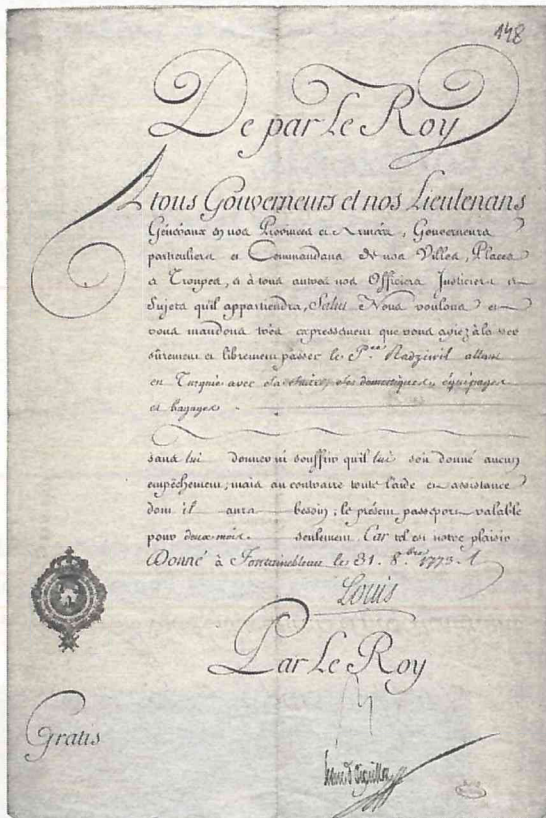 148
De par Le Roy
A tous Gouverneurs et nos Lieutenans
Généraux en nos Provinces et Armées, Gouverneurs
particuliers et Commandans de nos Villes, Places
et Trouppes, et à tous autres nos Officiers Justiciers et
Sujets qu'il appartiendra, Salut Nous voulons et
vous mandons très expressément que vous ayiez à laisser
sûrement et librement passer le P.ce Radziwil allant
en Turquie avec sa suite, ses domestiques, équipages
et bagages
sans lui donner ni souffrir qu'il lui soit donné aucun
empêchement; mais au contraire toute l'aide et assistance
dont il aura besoin; le présent passeport valable
pour deux mois seulement Car tel est notre plaisir
Donné à Fontainebleau le 31. 8.bre 1773
Louis
Par Le Roy
Gratis